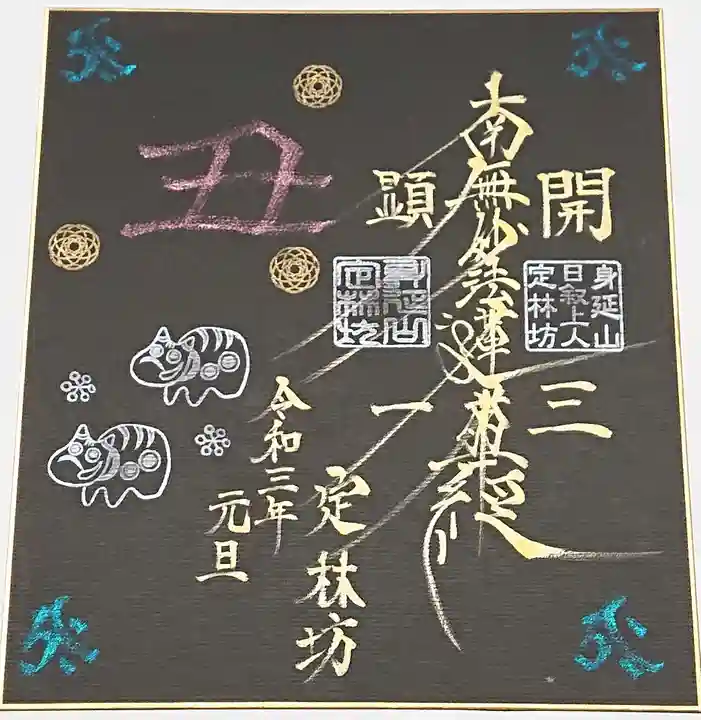 開三
南無妙法蓮華経
顕一
身延山
日叙上人
定林坊
身延山
定林坊
丑
令和三年
元旦
定林坊